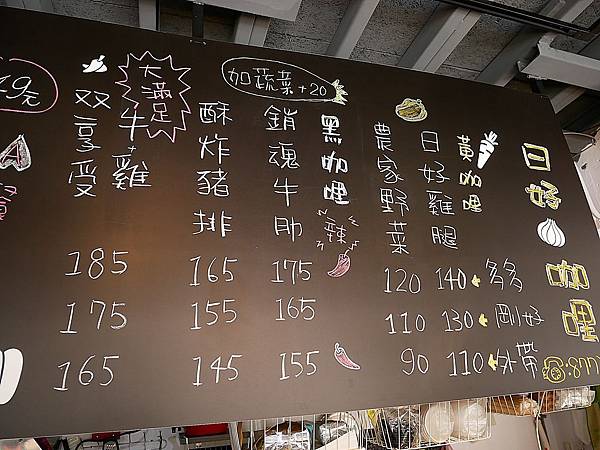 日好咖哩
☎:877
黃咖哩
日好雞腿
農家野菜
黑咖哩
辣
銷魂牛肋
酥炸豬排
牛+雞
雙享受
大滿足
如蔬菜+20
49元
多多 140 120 175 165 185
剛好 130 110 165 155 175
外帶 110 90 155 145 165